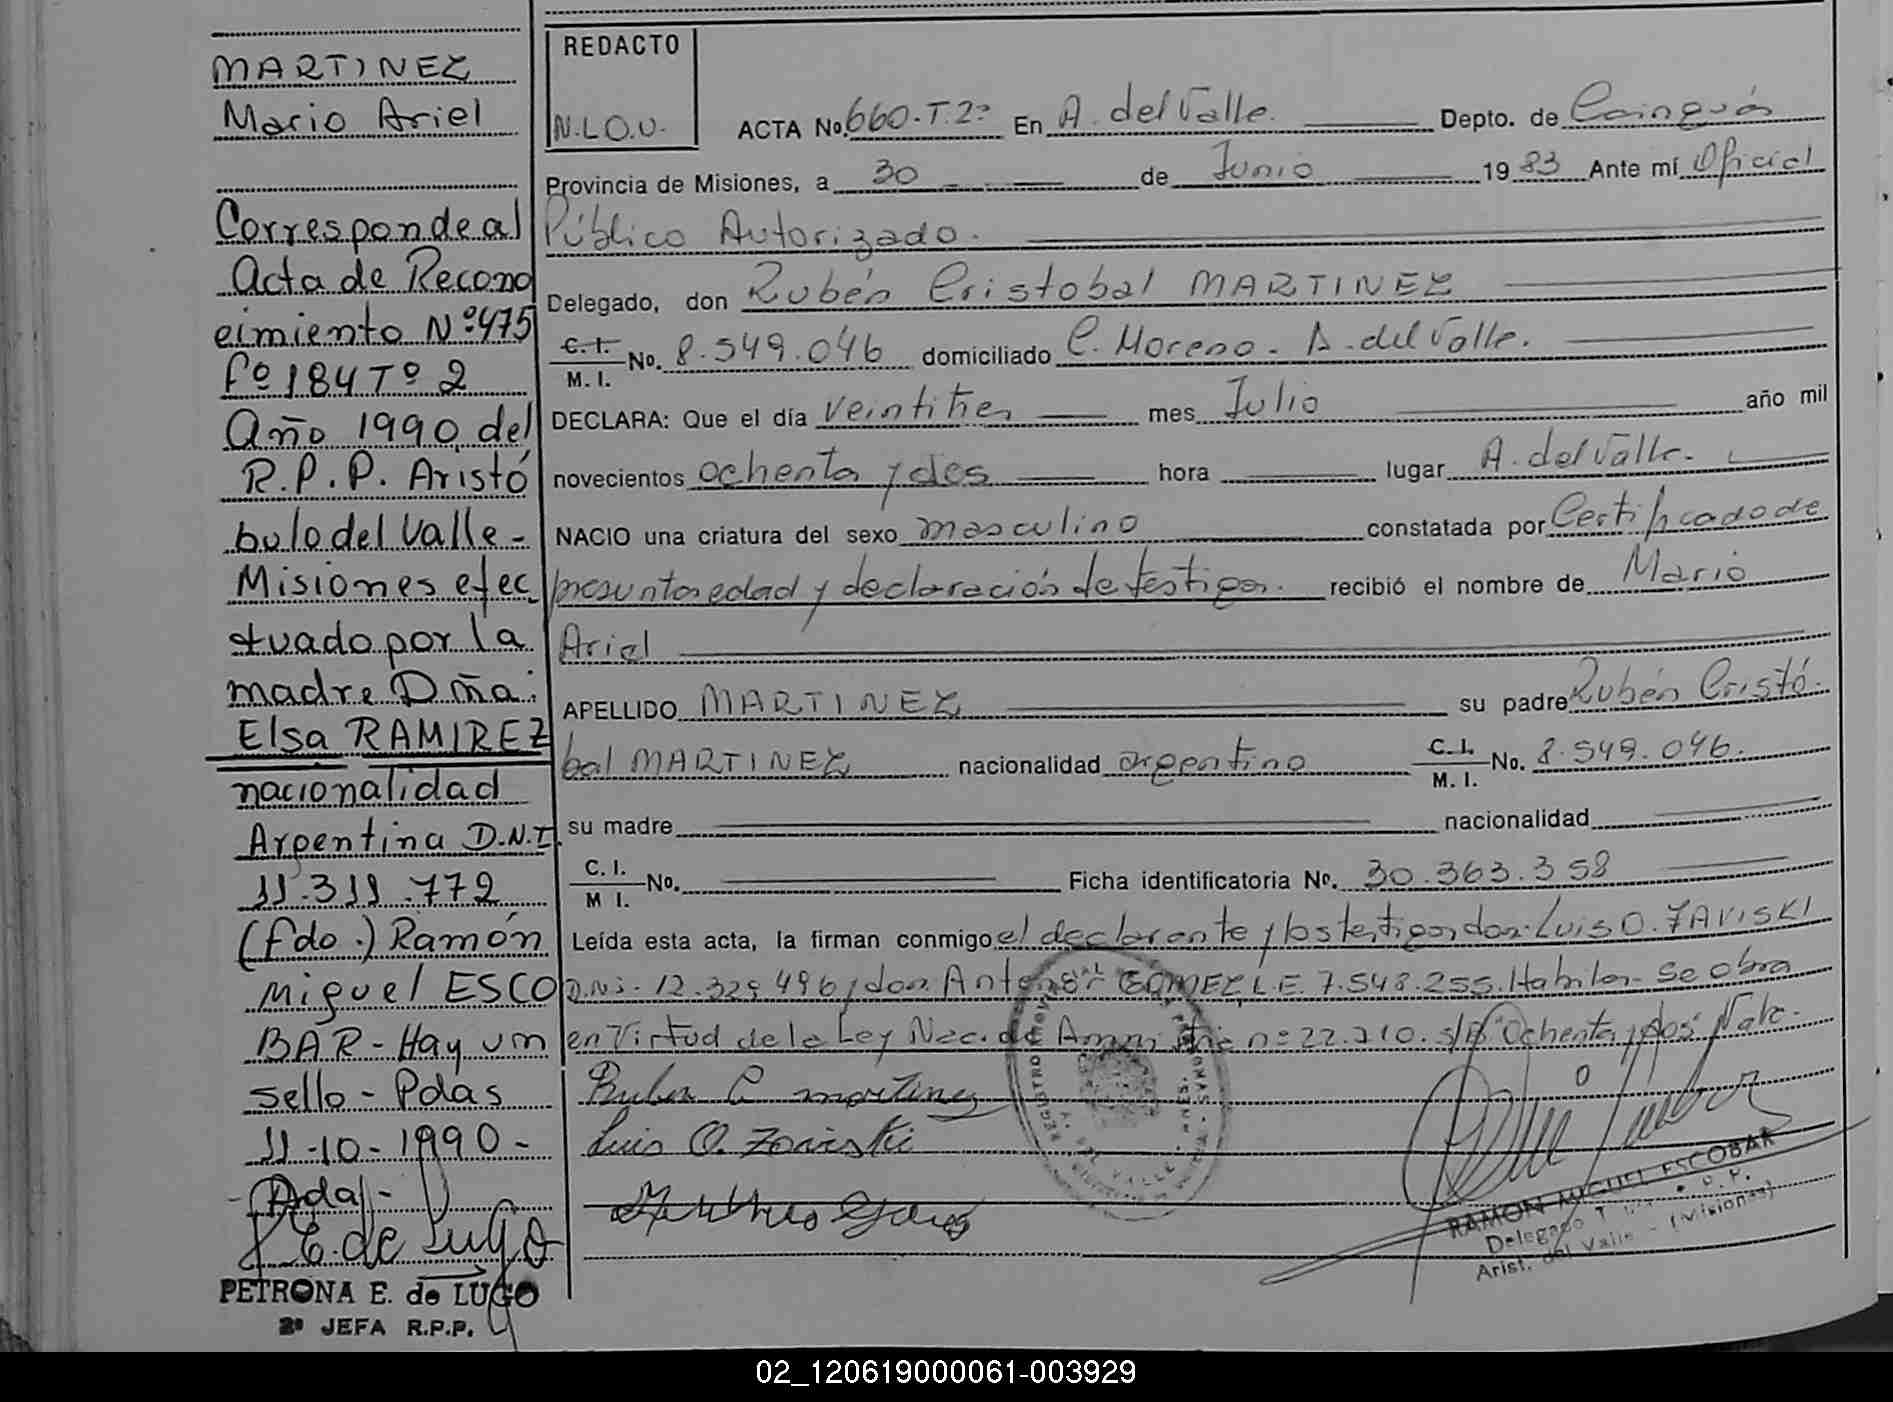 MARTINEZ
Mario Ariel
Corresponde al
Acta de Recono
cimiento Nº 475
Fº 184 Tº 2
Año 1990 del
R.P.P. Aristó
bulo del Valle-
Misiones efec
tuado por la
madre Dña:
Elsa RAMIREZ
nacionalidad
Argentina D.N.I.
11.311.772
(fdo.) Ramón
Miguel ESCO
BAR - Hay un
sello - Pdas
11-10-1990-
E. de Lugo
PETRONA E. de LUGO
2ª JEFA R.P.P.
REDACTO
N.L.O.U.
ACTA No. 660.T.2º En A. del Valle. Depto. de Cainguás
Provincia de Misiones, a 30 de Junio 1983 Ante mí Oficial
Público Autorizado.
Delegado, don Rubén Cristobal MARTINEZ
C. I. M. I. No. 8.549.046 domiciliado C. Moreno - A. del Valle.
DECLARA: Que el día veintitres mes Julio año mil
novecientos ochenta y dos hora lugar A. del Valle.
NACIO una criatura del sexo masculino constatada por Certificado de
presunta edad y declaración de testigos. recibió el nombre de Mario
Ariel
APELLIDO MARTINEZ su padre Rubén Cristó
bal MARTINEZ nacionalidad argentino C. I. M. I. No. 8.549.046.
su madre nacionalidad
C. I. M I. No. Ficha identificatoria Nº. 30.363.358
Leída esta acta, la firman conmigo el declarante y los testigos don: Luis O. ZAVISKI
D.N.I. 12.329.496 y don Antenor GOMEZ L.E. 7.548.255. Habiles- Se obra
en Virtud de la Ley Nac. de Amnistia nº 22.210. s/p "Ochenta y dos" Vale.
Ruben C martinez
Luis O. Zaviski
RAMON MIGUEL ESCOBAR
Delegado
Arist. del Valle - (Misiones)
02_120619000061-003929